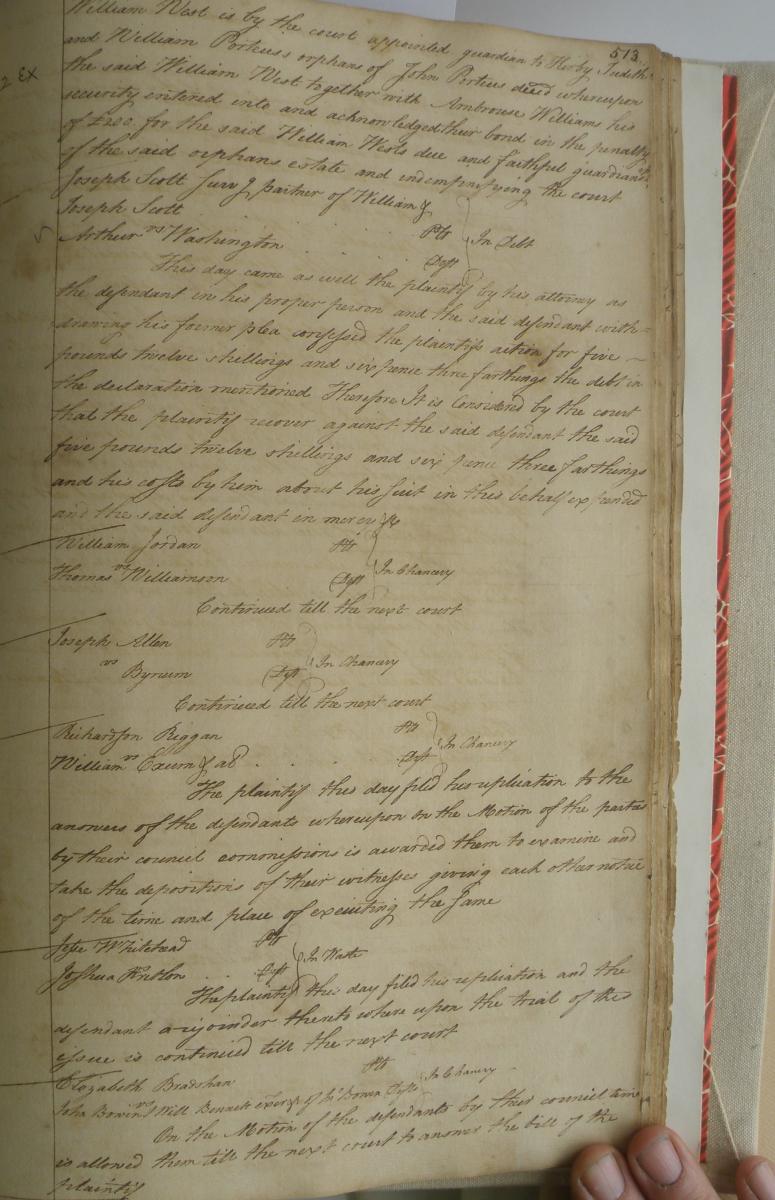 513
William West is by the court appointed guardian to Kerby, Judith
and William Porteus orphans of John Porteus deced whereupon
the said William West together with Ambrouse Williams his
security entered into and acknowledged their bond in the penalty
of £200 for the said William Wests due and faithful guardian
of the said orphans estate and indempnifying the court
Joseph Scott surv.g partner of William &
Joseph Scott . . . Ptr
vs In Debt
Arthur Washington . . . Deft
This day came as well the plaintif by his attorney as
the defendant in his proper person and the said defendant with=
drawing his former plea confessed the plaintifs action for five
pounds twelve shellings and six pence three farthings the debt in
the declaration mentioned Therefore It is Considered by the court
that the plaintif recover against the said defendant the said
five pounds twelve shellings and six pence three farthings
and his costs by him about his suit in this behalf expended
and the said defendant in mercy &c
William Jordan Ptr
vs In Chancery
Thomas Williamson Deft
Continued till the next court
Joseph Allen Ptr
vs In Chancery
Bynum Deft
Continued till the next court
Richardson Riggan Ptr
vs In Chancery
William Exum & al . . . Deft
The plaintif this day filed his replication to the
answers of the defendants whereupon on the Motion of the parties
by their council commessions is awarded them to examine and
take the depositions of their witnesses giving each other notice
of the time and place of executing the same
Jesse Whitehead Ptr
vs In Waste
Joshua . . Deft
The plaintif this day filed his replication and the
defendant a rejoinder thereto where upon the trial of the
issue is continued till the next court
Elizabeth Bradshaw Ptr
vs In Chancery
John Bowin & Will Bennett exors of Bowin Defts
On the Motion of the defendants by their council time
is allowed them till the next court to answer the bill of the
plaintif